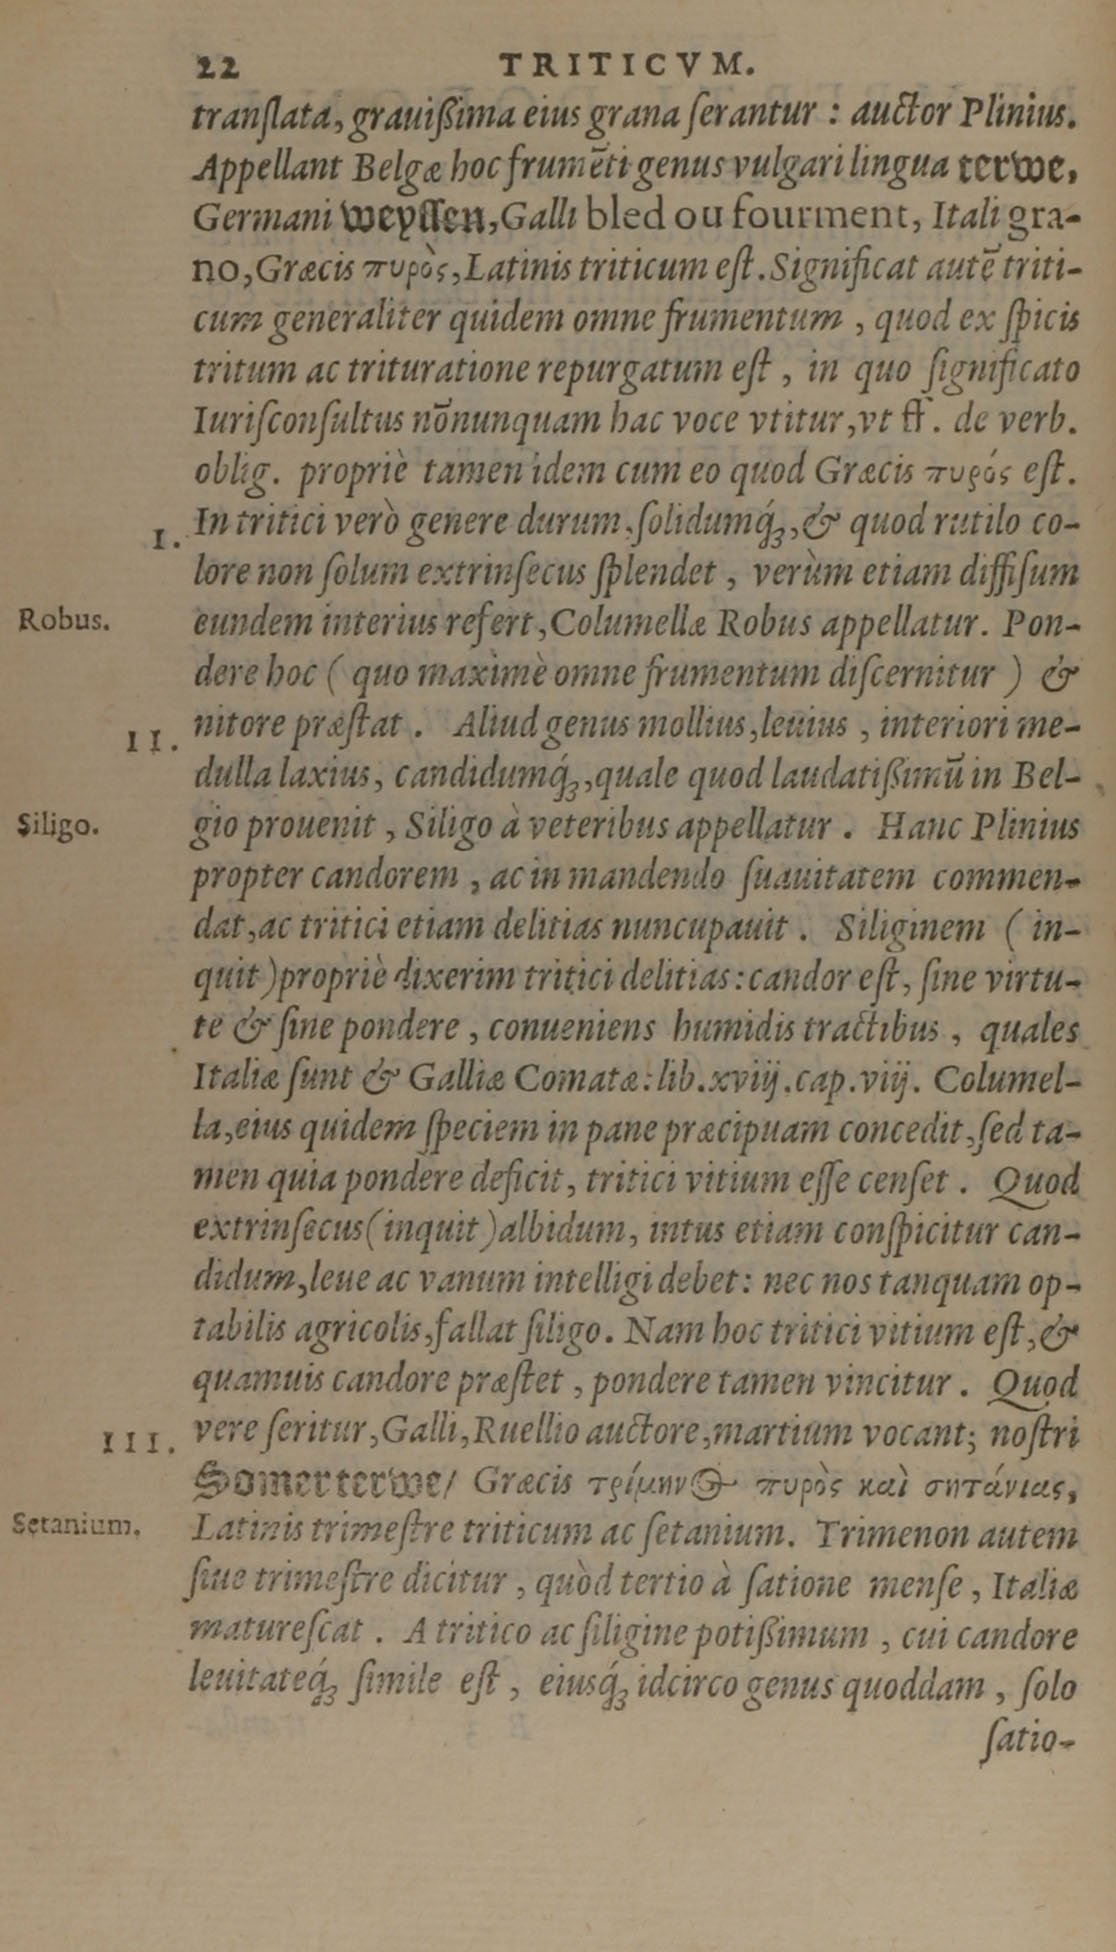 22 TRITICVM.
tranſlata, grauißima eius grana ſerantur : auctor Plinius.
Appellant Belgæ hoc frumēti genus vulgari lingua terwe,
Germani weyſſen, Galli bled ou fourment, Itali gra-
no, Græcis πυρὸς, Latinis triticum eſt. Significat autē triti-
cum generaliter quidem omne frumentum , quod ex ſpicis
tritum ac trituratione repurgatum eſt , in quo ſignificato
Iuriſconſultus nōnunquam hac voce vtitur, vt ff. de verb.
oblig. propriè tamen idem cum eo quod Græcis πυρός eſt.
I. In tritici verò genere durum, ſolidumq́ꝫ, & quod rutilo co-
lore non ſolum extrinſecus ſplendet , verùm etiam diffiſum
Robus. eundem interius refert, Columellæ Robus appellatur. Pon-
dere hoc ( quo maximè omne frumentum diſcernitur ) &
II. nitore præſtat . Aliud genus mollius, leuius , interiori me-
dulla laxius, candidumq́ꝫ, quale quod laudatißimū in Bel-
Siligo. gio prouenit , Siligo à veteribus appellatur . Hanc Plinius
propter candorem , ac in mandendo ſuauitatem commen-
dat, ac tritici etiam delitias nuncupauit . Siliginem ( in-
quit ) propriè dixerim tritici delitias : candor eſt, ſine virtu-
te & ſine pondere , conueniens humidis tractibus , quales
Italiæ ſunt & Galliæ Comatæ : lib. xviij. cap. viij. Columel-
la, eius quidem ſpeciem in pane præcipuam concedit, ſed ta-
men quia pondere deficit, tritici vitium eſſe cenſet . Quod
extrinſecus (inquit ) albidum, intus etiam conſpicitur can-
didum, leue ac vanum intelligi debet : nec nos tanquam op-
tabilis agricolis, fallat ſiligo. Nam hoc tritici vitium eſt, &
quamuis candore præſtet , pondere tamen vincitur . Quod
III. vere ſeritur, Galli, Ruellio auctore, martium vocant; noſtri
Somerterwe/ Græcis τρίμηνος πυρὸς καὶ σητάνιας,
Setanium. Latinis trimeſtre triticum ac ſetanium. Trimenon autem
ſiue trimeſtre dicitur , quòd tertio à ſatione menſe , Italiæ
matureſcat . A tritico ac ſiligine potißimum , cui candore
leuitateq́ꝫ ſimile eſt , eiusq́ꝫ idcirco genus quoddam , ſolo
ſatio-